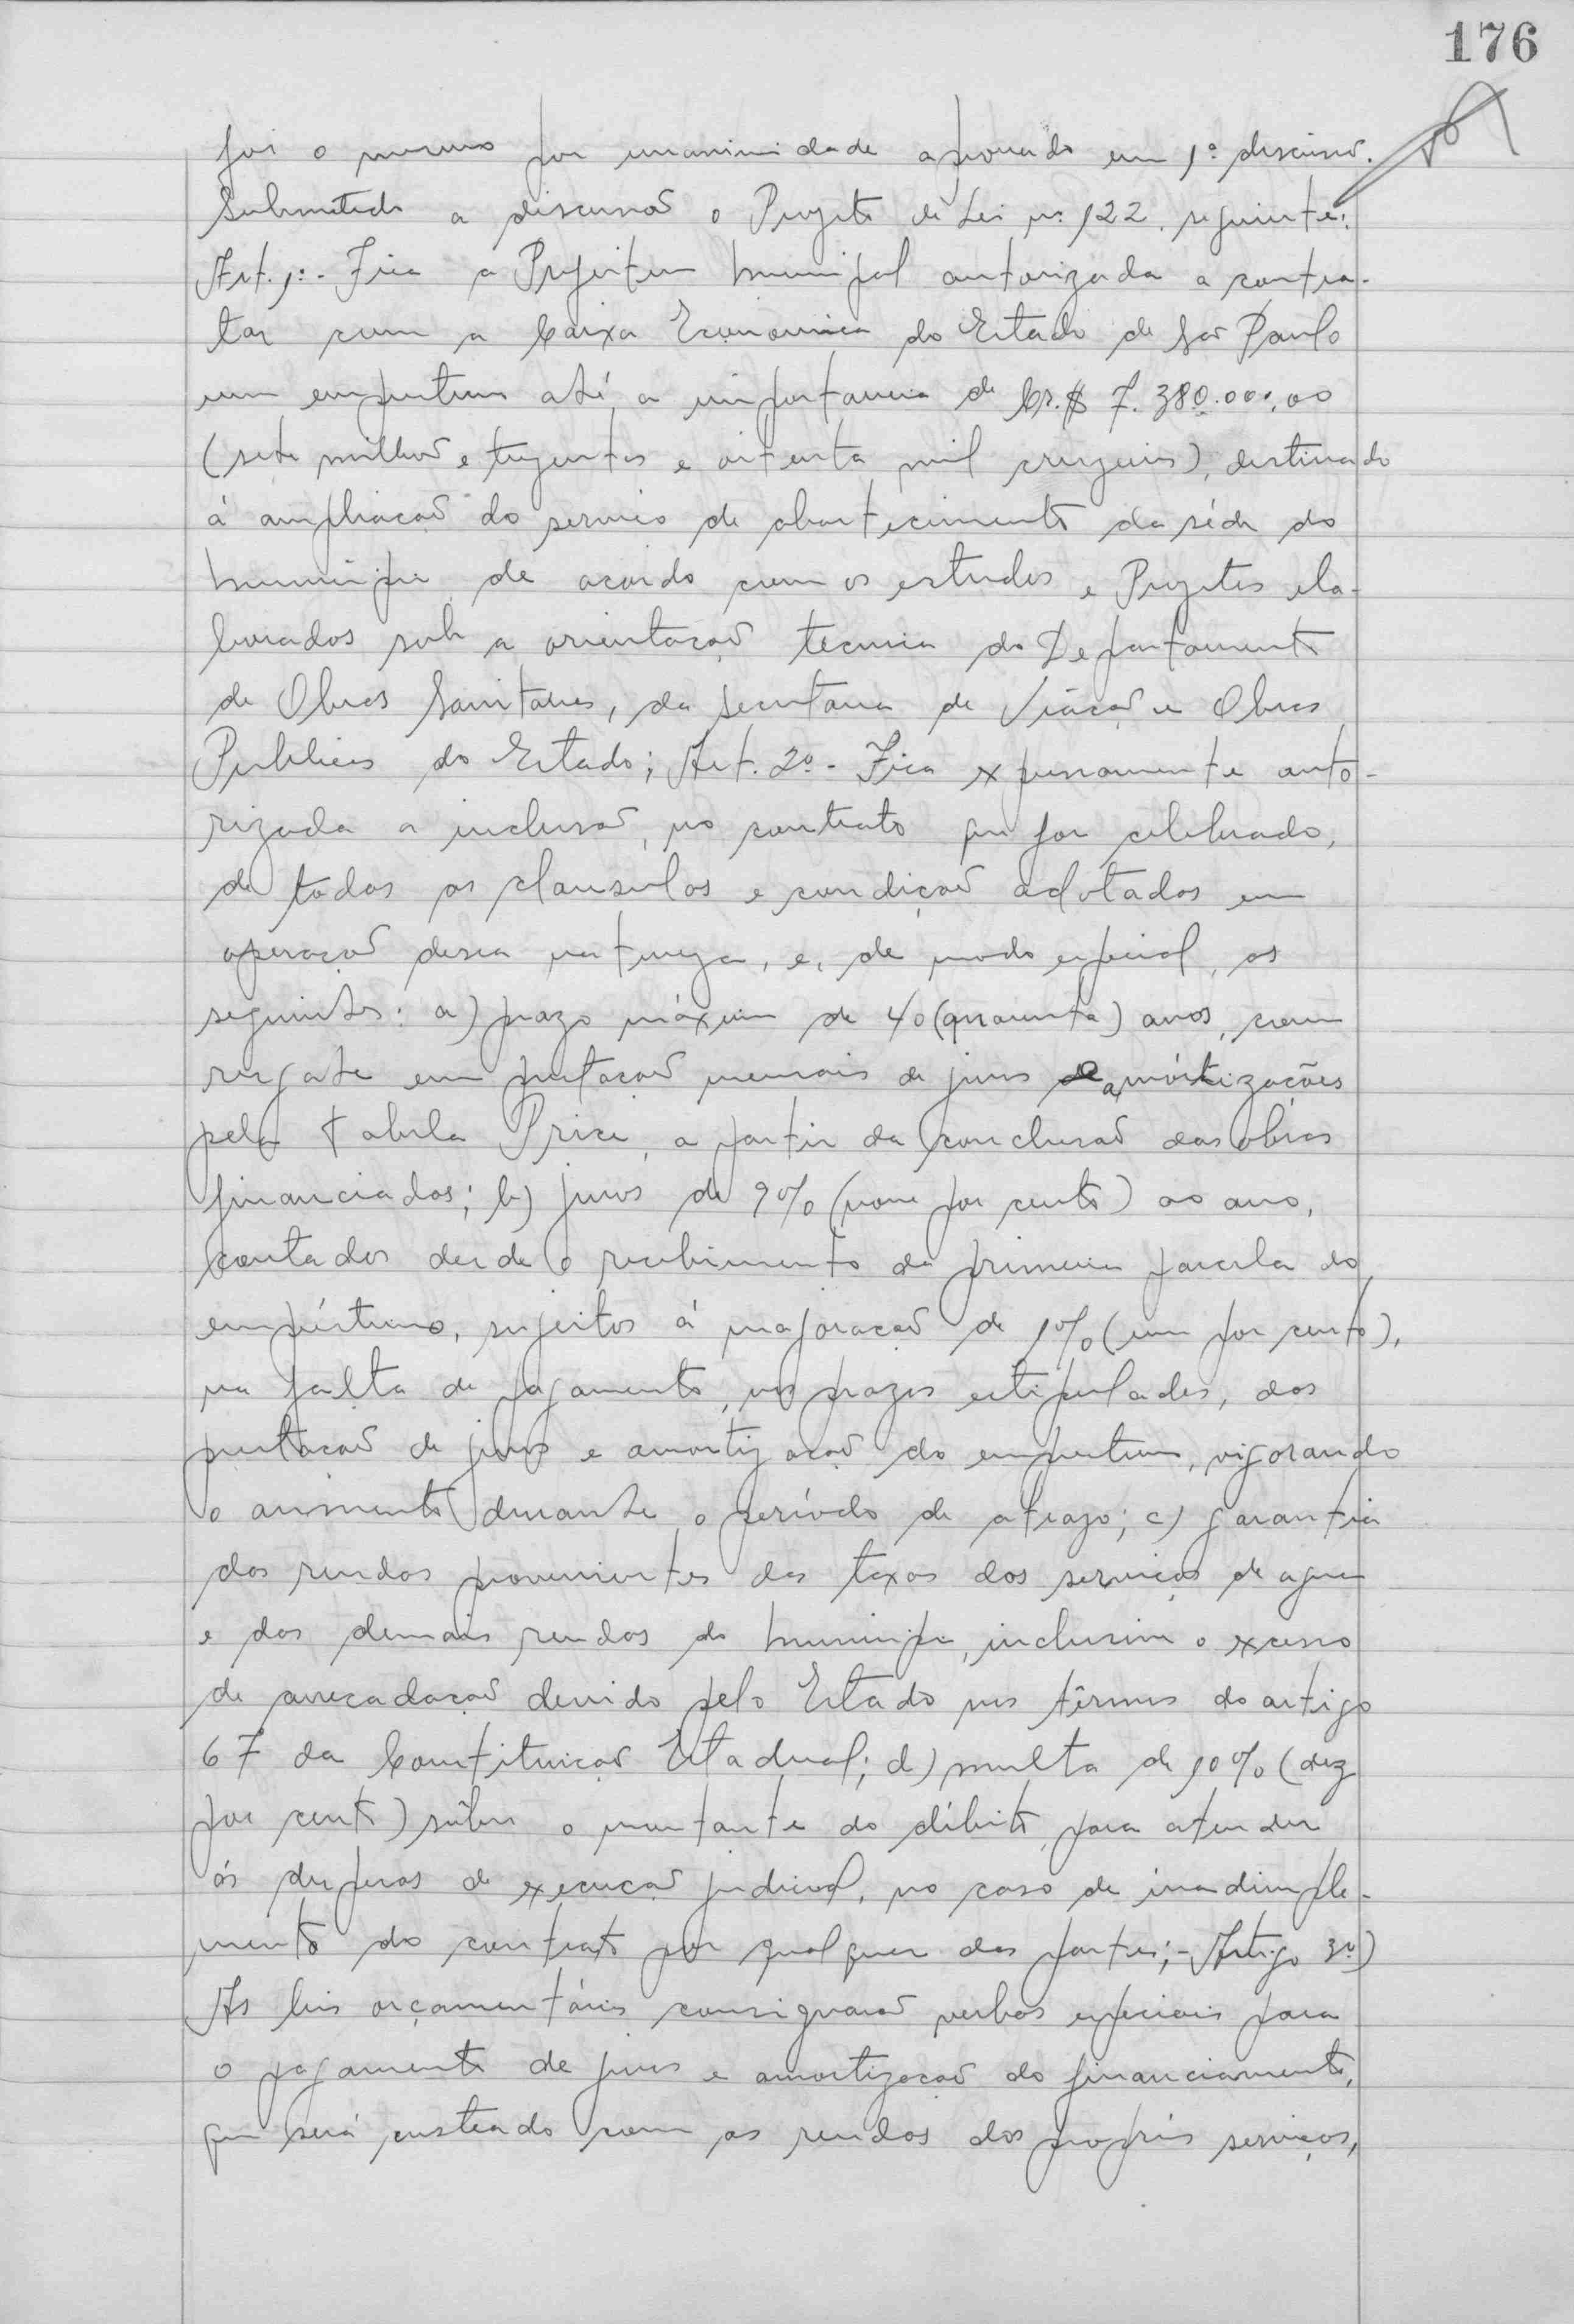 176
foi o mesmo por unanimidade aprovado em 1ª discussão.
Submetido a discussão o Projeto de Lei nº 122 seguinte:
Art. 1º - Fica a Prefeitura Municipal autorizada a contra-
tar com a Caixa Economica do Estado de São Paulo
um emprestimo até a importancia de Cr.$ 7.380.000,00
(sete milhões e trezentos e oitenta mil cruzeiros), destinado
á ampliação do serviço de abastecimento da séde do
Municipio de acordo com os estudos e Projetos ela-
borados sob a orientação técnica do Departamento
de Obras Sanitarias, da Secretaria de Viação e Obras
Publicas do Estado; Art. 2º - Fica expressamente auto-
rizada a inclusão, no contrato que for celebrado,
de todas as clausulas e condições adotadas em
operações dessa natureza, e, de modo especial, as
seguintes: a) prazo máximo de 40 (quarenta) anos, com
resgate em prestações mensais de juros e amórtizações
pela Tabela Price, a partir da conclusão das obras
financiadas; b) juros de 9% (nove por cento) ao ano,
contados desde o recebimento da primeira parcela do
empréstimo, sujeitos á majoração de 1% (um por cento),
na falta de pagamento, nos prazos estipulados, das
prestações de juros e amortização do emprestimo, vigorando
o aumento durante o período de atrazo; c) garantia
das rendas provenientes das taxas dos serviços de agua
e das demais rendas do Municipio, inclusive o excesso
de arrecadação devido pelo Estado nos têrmos do artigo
67 da Constituição Estadual; d) multa de 10% (dez
por cento) sôbre o montante do débito, para atender
ás despesas de execução judicial, no caso de inadimple-
mento do contrato por qualquer das partes; - Artigo 3º)
As leis orçamentárias consignarão verbas especiais para
o pagamento de juros e amortização do financiamento,
que será custeado com as rendas dos proprios serviços,